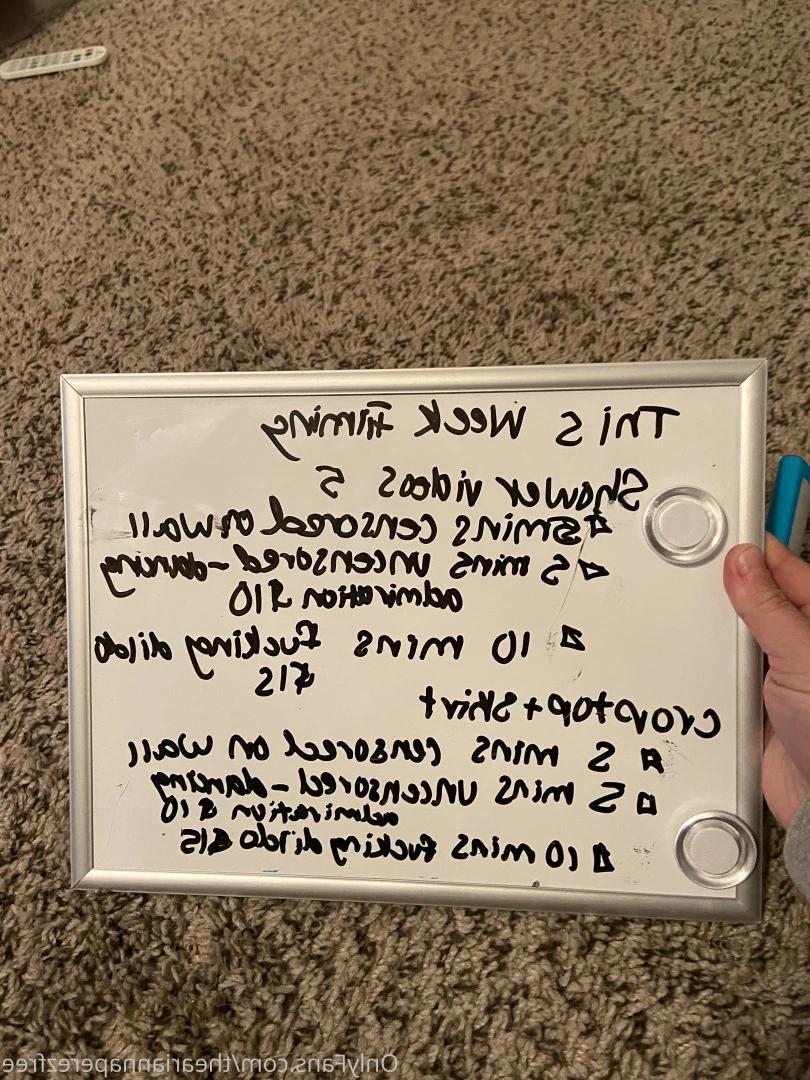 This Week Filming
Shower videos 5
5mins censored on wall
5 mins uncensored - dancing
admiration $10
10 mins fucking dildo
$15
croptop + skirt
5 mins censored on wall
5 mins uncensored - dancing
admiration $10
10 mins fucking dildo $15
OnlyFans.com/theariannaperezfree